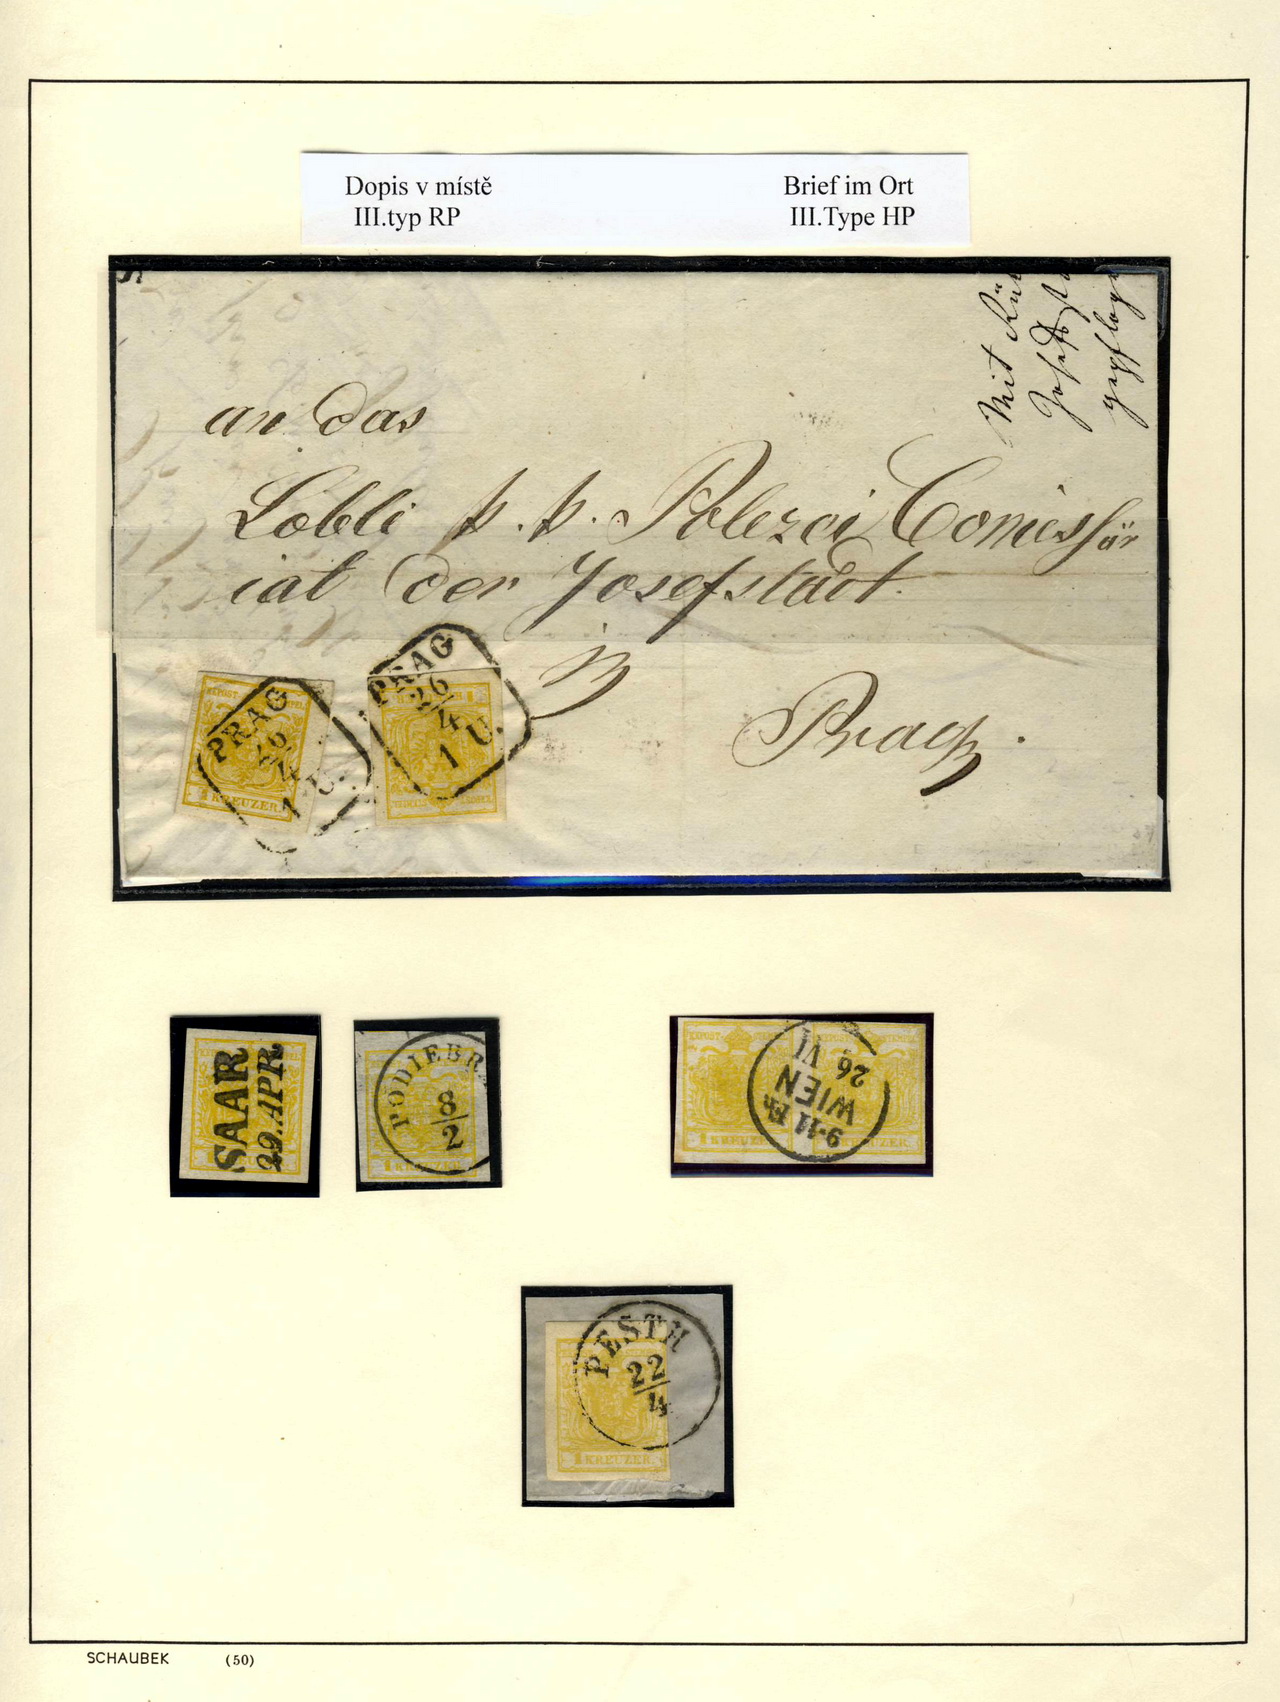 Dopis v místě
III.typ RP
Brief im Ort
III.Type HP
Mit
an das
Löbli k. k. Polezei Comissär
iat der Josefstadt.
in
Prag.
PRAG
26/4
1 U.
1 KREUZER
PRAG
26/4
1 U.
SAAR
29.APR.
PODIEBR
8/2
1 KREUZER
WIEN
26 VI
9-11 Fh.
1 KREUZER
PESTH
22/4
1 KREUZER
SCHAUBEK (50)